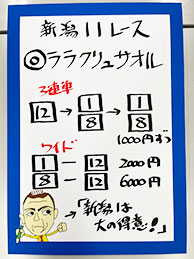 新潟11レース
◎ララクリュサオル
3連単
12 → 1 → 1
8 8
1000円ずつ
ワイド
1 － 12 2000円
8 － 12 6000円
→「新潟は
大の得意!」